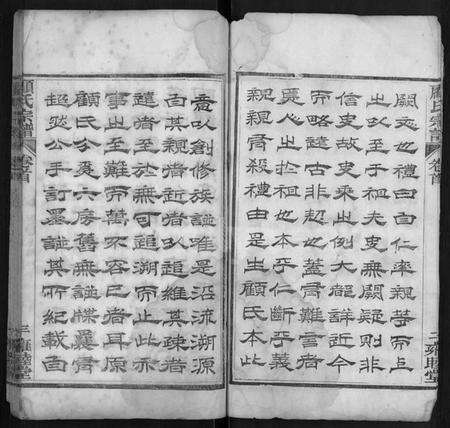 顧氏宗譜
卷首
二 雍睦堂
闕文也禮曰自仁率親等而上
之以至于祖夫史無闕疑則非
信史故史乘之例大都詳近今
而略遠古非恝也蓋有難言者
也本乎仁斷乎義
親親有殺禮由是生顧氏本此
意以創修族譜唯是沿流溯源
由其親者近者以追維其疎者
遠者至於無可追溯而止此亦
事之至難而萬不容已者耳原
顧氏分爲六房舊無譜牒曩有
超然公手訂墨譜其所紀載由
顧氏宗譜
卷首
三 雍睦堂